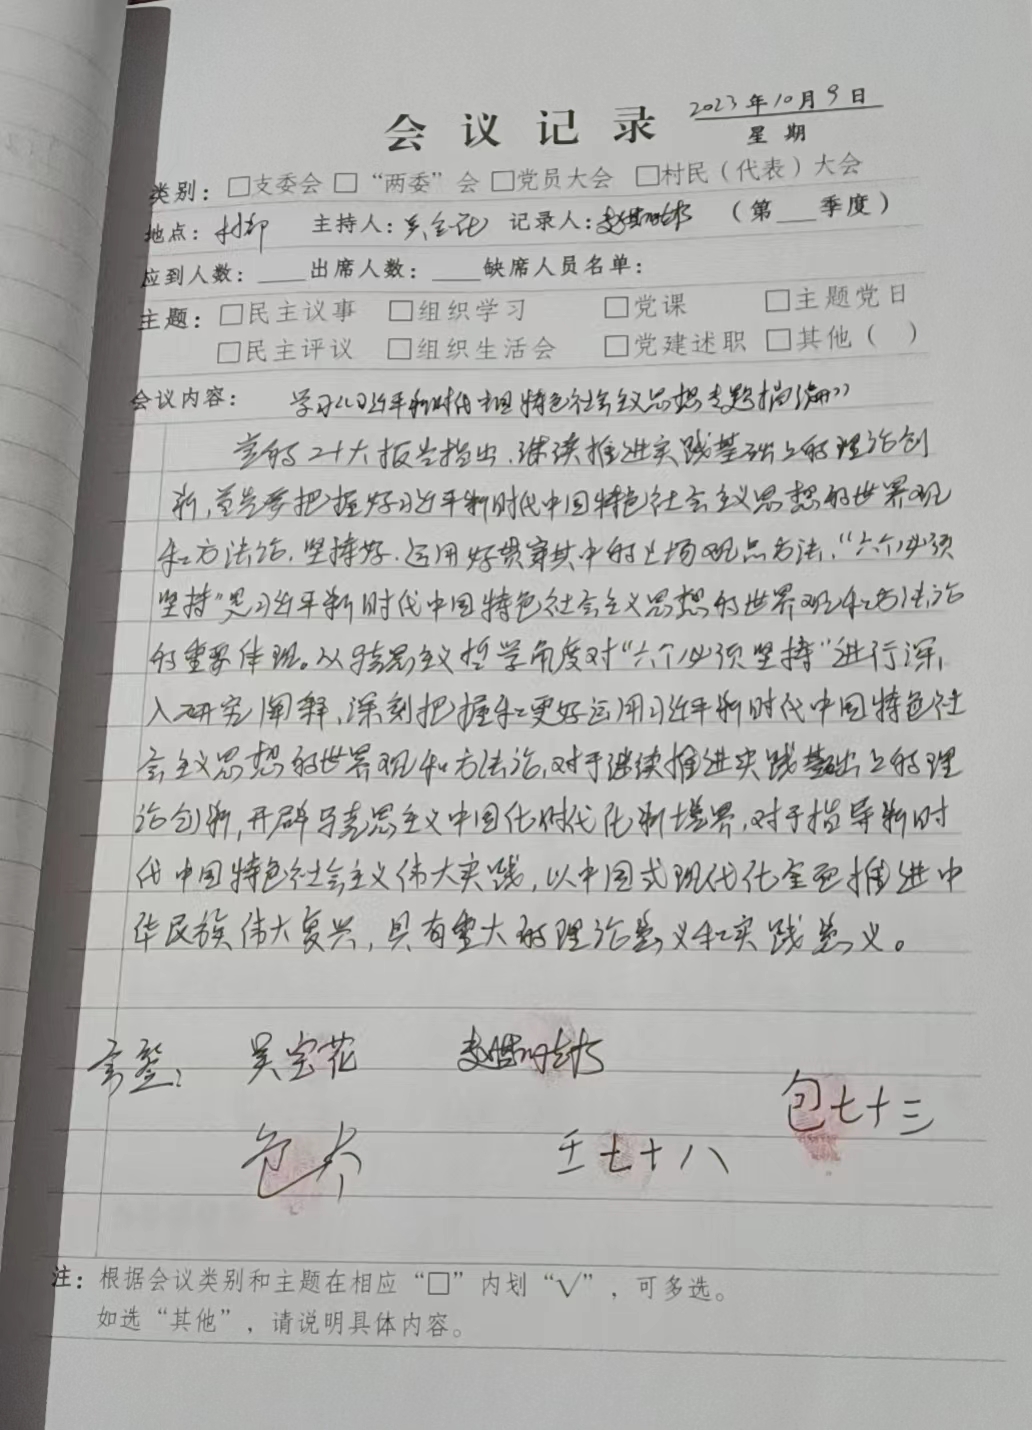 会议记录 2023年10月9日
星期
类别：□支委会 □“两委”会 □党员大会 □村民（代表）大会
地点：村部 主持人：吴宝花 记录人： （第 季度）
应到人数： 出席人数： 缺席人员名单：
主题：□民主议事 □组织学习 □党课 □主题党日
□民主评议 □组织生活会 □党建述职 □其他（ ）
会议内容： 学习《习近平新时代中国特色社会主义思想专题摘编》
党的二十大报告指出，继续推进实践基础上的理论创
新，首先要把握好习近平新时代中国特色社会主义思想的世界观
和方法论，坚持好、运用好贯穿其中的立场观点方法，“六个必须
坚持”是习近平新时代中国特色社会主义思想的世界观和方法论
的重要体现。从马克思主义哲学角度对“六个必须坚持”进行深
入研究阐释，深刻把握和更好运用习近平新时代中国特色社
会主义思想的世界观和方法论，对于继续推进实践基础上的理
论创新，开辟马克思主义中国化时代化新境界，对于指导新时
代中国特色社会主义伟大实践，以中国式现代化全面推进中
华民族伟大复兴，具有重大的理论意义和实践意义。
会签： 吴宝花
包七十三
包 王七十八
注：根据会议类别和主题在相应“□”内划“√”，可多选。
如选“其他”，请说明具体内容。